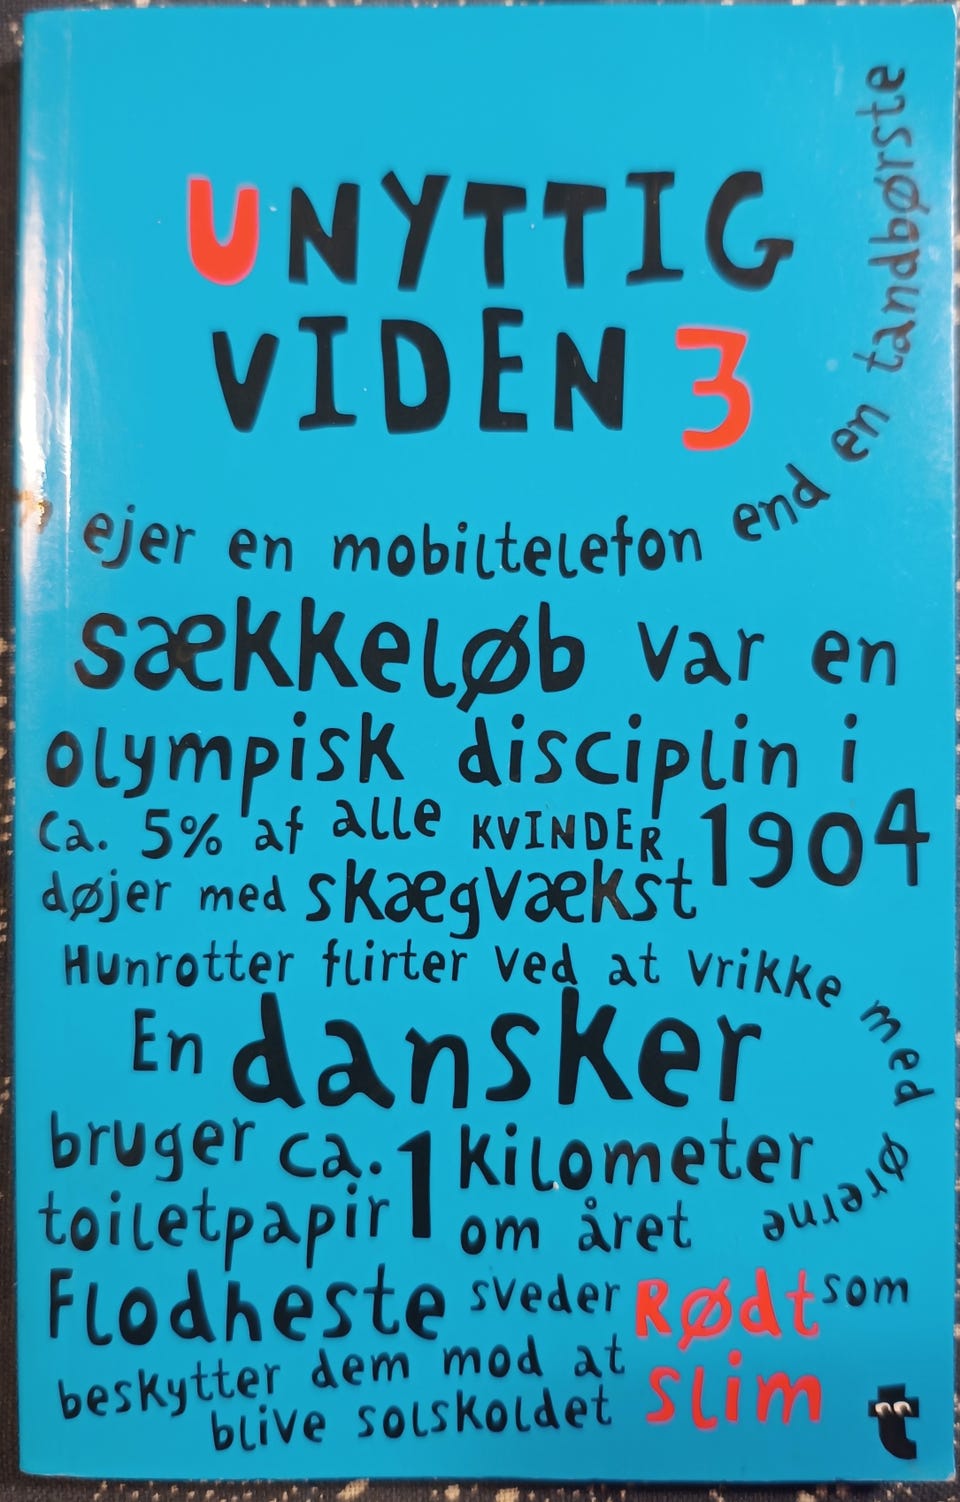 UNYTTIG
VIDEN 3
ejer en mobiltelefon end en tandbørste
sækkeløb var en
olympisk disciplin i
1904
Ca. 5% af alle KVINDER
døjer med skægvækst
Hunrotter flirter ved at vrikke med ørerne
En dansker
bruger ca. 1 kilometer
toiletpapir om året
Flodheste sveder Rødt som
beskytter dem mod at slim
blive solskoldet
t